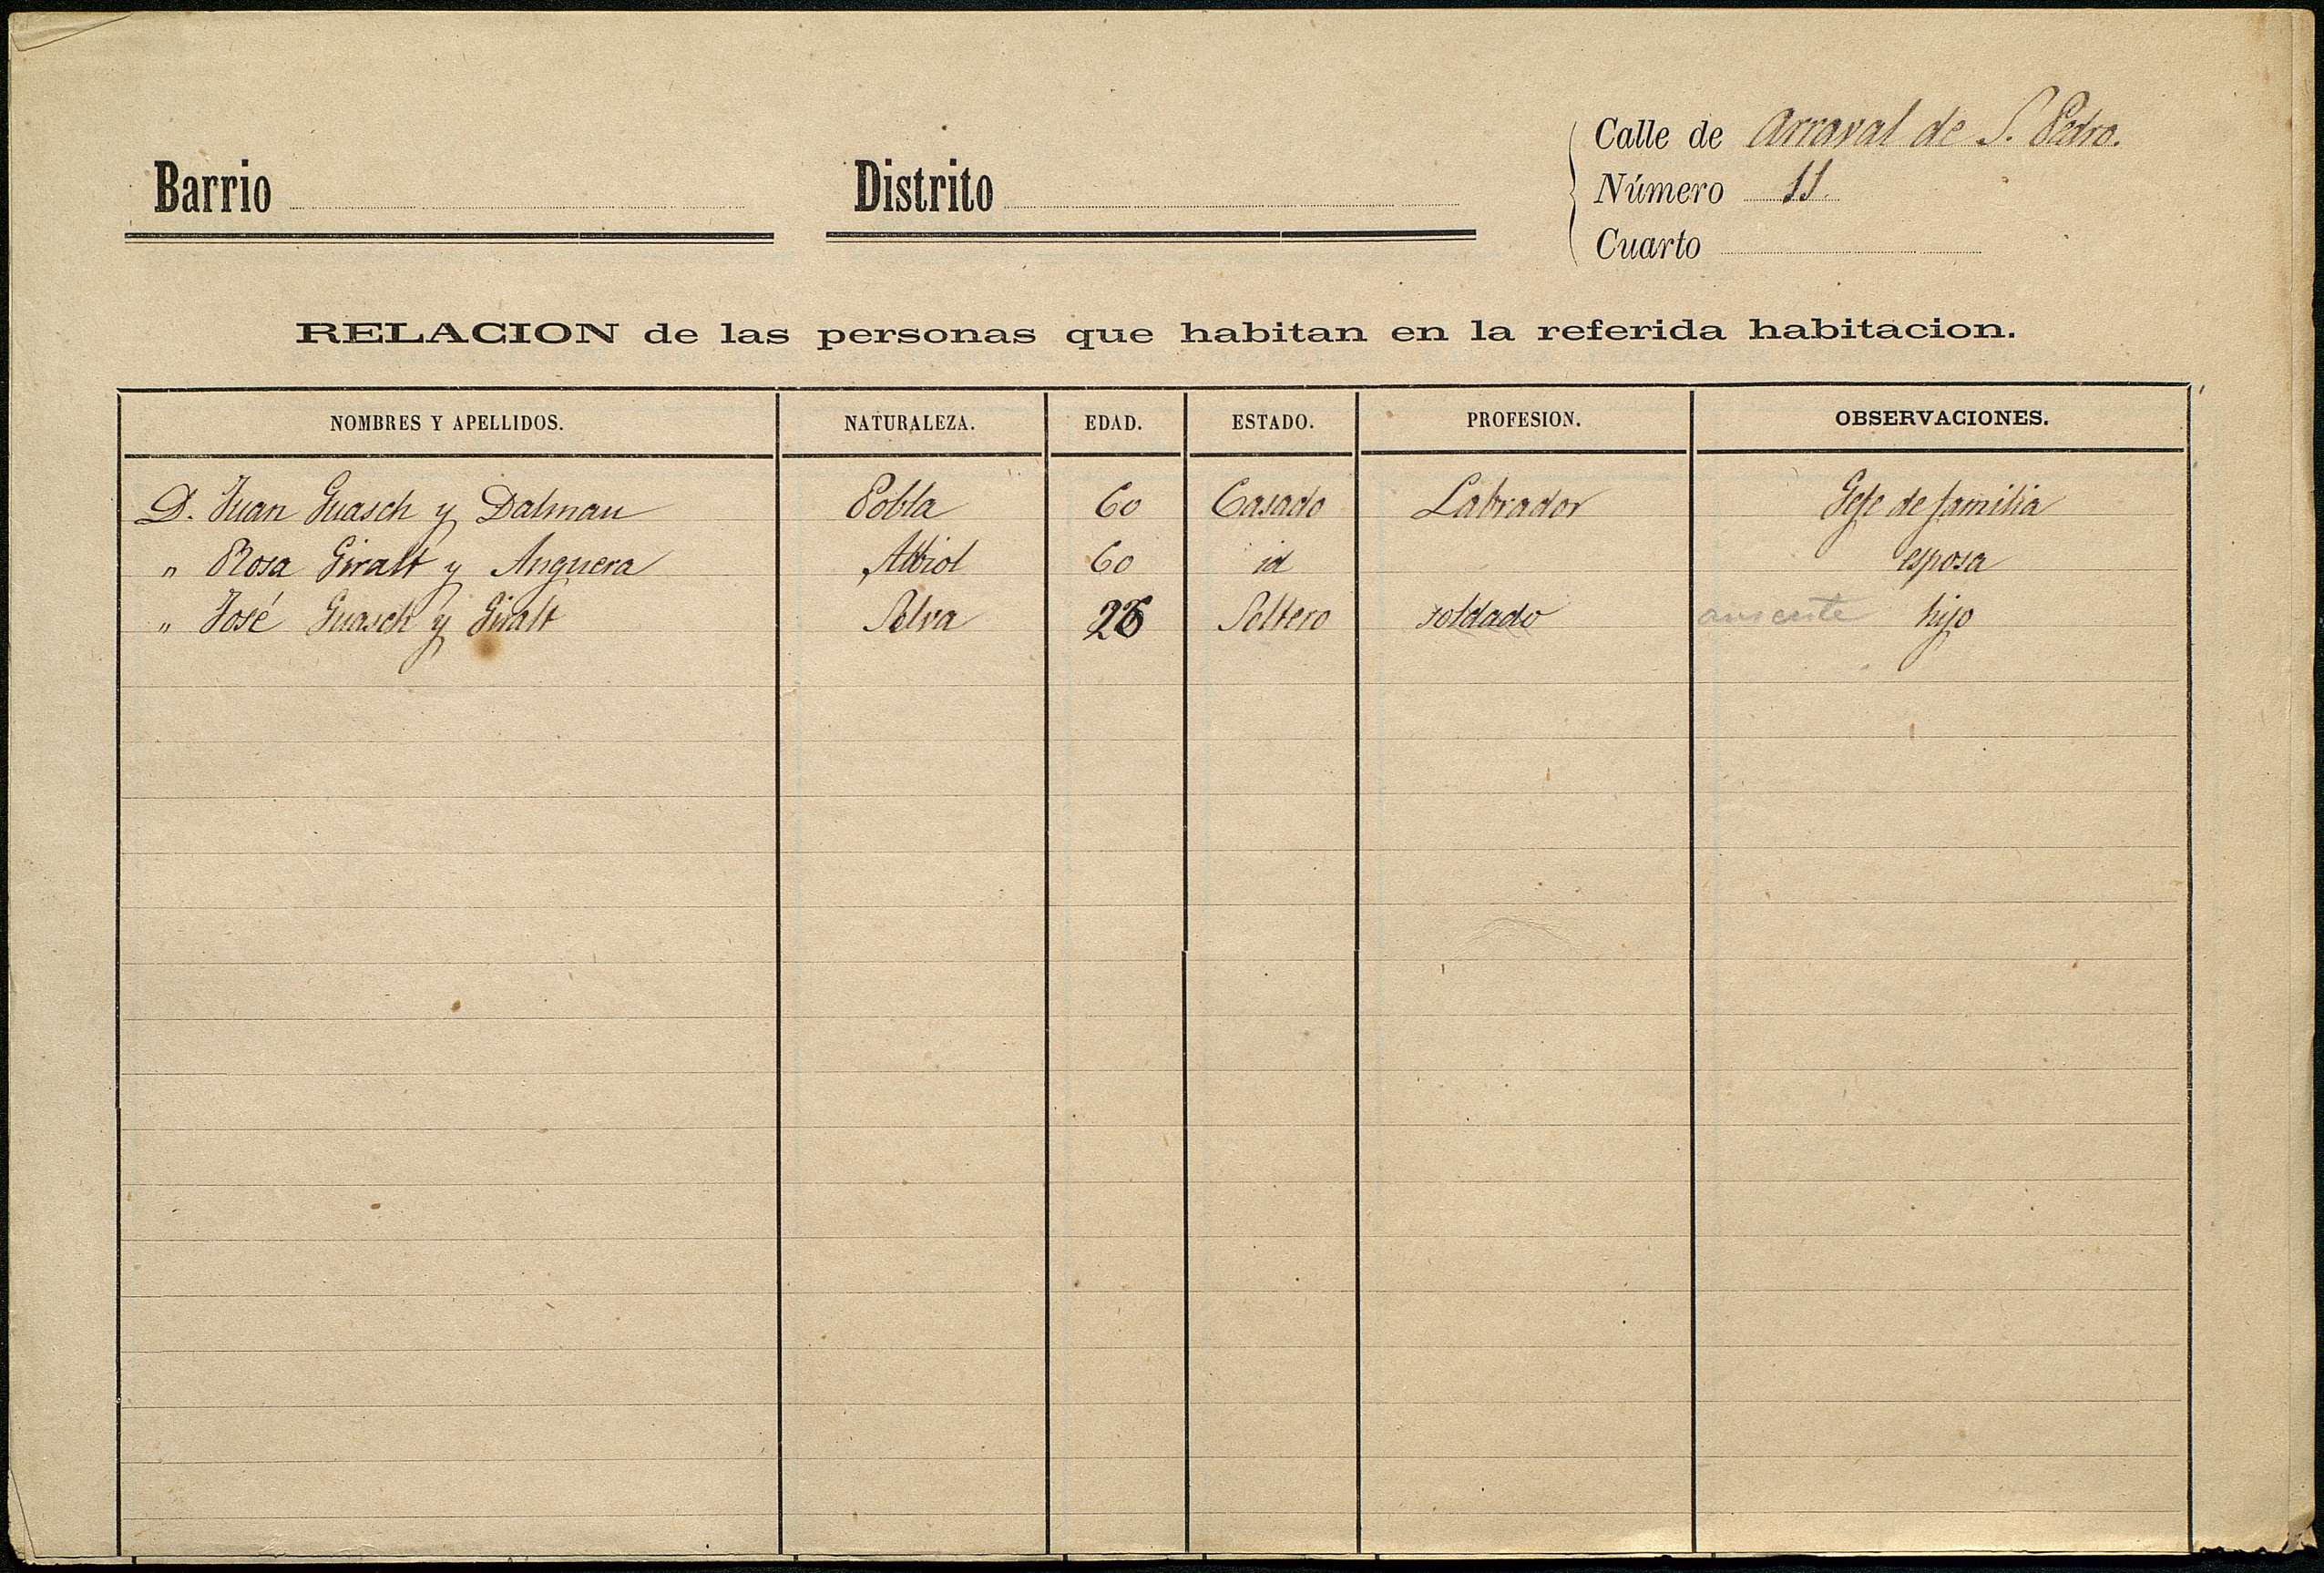 Calle de Arraval de S. Pedro.
Barrio Distrito Número 11.
Cuarto
RELACION de las personas que habitan en la referida habitacion.
NOMBRES Y APELLIDOS. NATURALEZA. EDAD. ESTADO. PROFESION. OBSERVACIONES.
D. Juan Guasch y Dalmau Pobla 60 Casado Labrador Gefe de familia
" Rosa Giralt y Anguera Albiol 60 id esposa
" José Guasch y Giralt Selva Soltero soldado ausente hijo